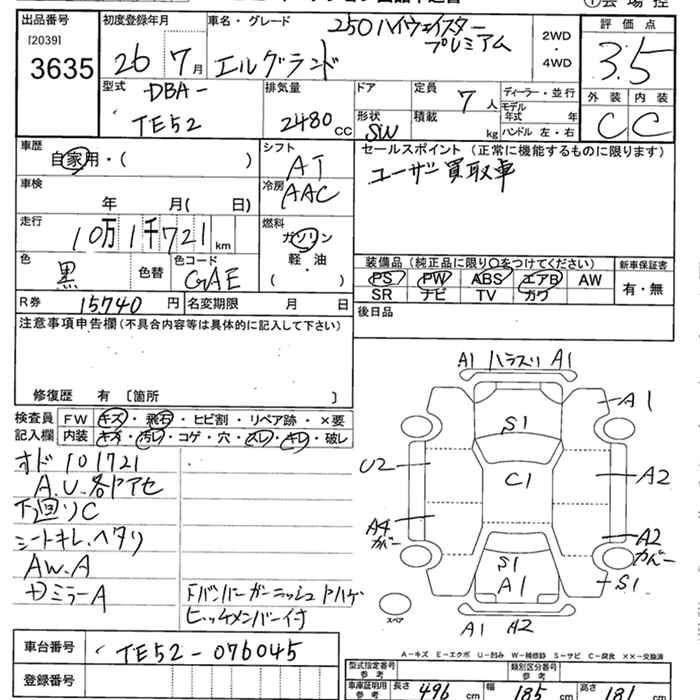 出品番号
[2039]
3635
初度登録年月
26年 7月
車名・グレード
250ハイウェイスター
プレミアム
エルグランド
2WD
・
4WD
評価点
3.5
外装 内装
C C
型式
DBA-
TE52
排気量
2480cc
ドア
形状
SW
定員
7人
積載
kg
ディーラー・並行
モデル
年式 年
ハンドル 左・右
車歴
自家用・( )
シフト
AT
セールスポイント (正常に機能するものに限ります)
ユーザー買取車
車検
年 月( 日)
冷房
AAC
走行
10万1千721km
燃料
ガソリン
軽・油
・
( )
色
黒
色替
色コード
GAE
装備品 (純正品に限り○をつけてください)
PS PW ABS エアB AW
SR ナビ TV カワ
新車保証書
有・無
R券 15740円
名変期限 月 日
後日品
注意事項申告欄(不具合内容等は具体的に記入して下さい)
修復歴 有 [箇所 ]
検査員
記入欄
FW キズ・飛石・ヒビ割・リペア跡・×要
内装 キズ・汚レ・コゲ・穴・スレ・キレ・破レ
オド101721
A.U.各ドアセ
下回りC
シートキレ.ヘタリ
AW.A
ドミラーA
ドバンパーガーニッシュ ドハゲ
ヒッチメンバー付
A1 ハラズリ A1
A1
S1
U2
C1
A2
A4
カバー
A2
カバー
S1
A1
S1
スペア
A1 A2
A-キズ E-エクボ U-凹み W-補修跡 S-サビ C-腐食 ××-交換済
車台番号
TE52-076045
登録番号
型式指定番号
参考
類別区分番号
参考
車庫証明用
参考
長さ 496 cm 幅 185 cm 高さ 181 cm